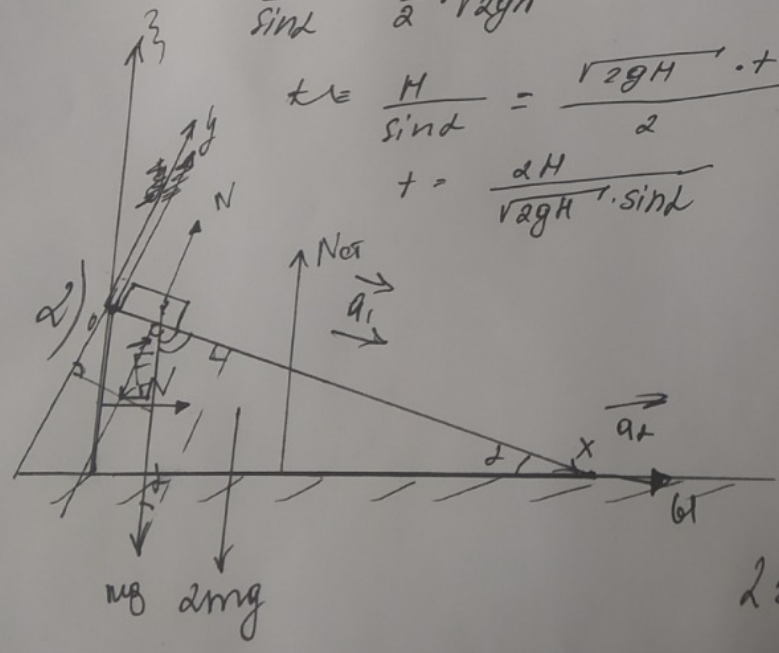 sinα 2 √2gH
H/sinα = √2gH · t / 2
t = 2H / √2gH · sinα
y
N
Nст
2)
a₁
a₂
α
x
mg 2mg